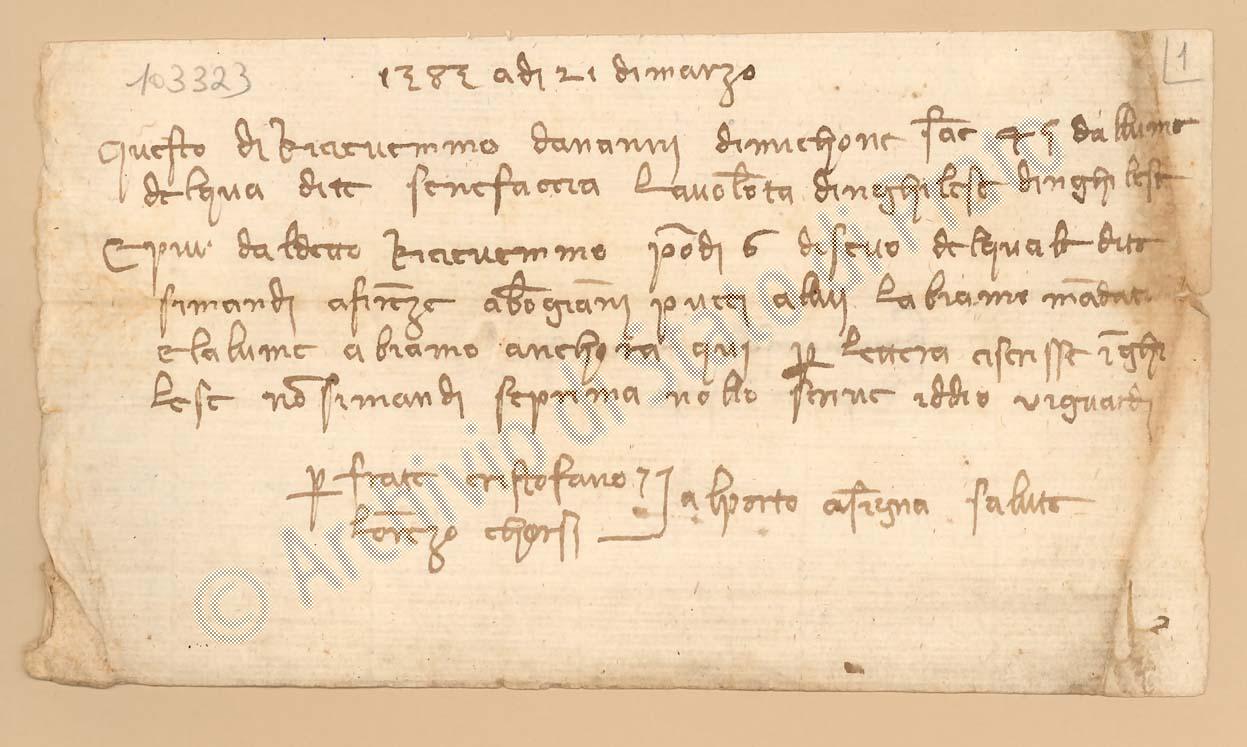 103323
1
1383 adi 21 di marzo
Questo di Riceuemmo dananni dimichone sac 45 dallume
delqua dite senefaccia lauolonta dinghilese dinghilese
Epiu daldetto Riceuemmo pondi 6 di seuo delquale dite
simandi afirenze abogianni pucci alui labiamo mandato
elalume abiamo anchora qui per lettera ciscrisse inghi
lese non simandi seprima nollo scriue iddio viguardi
per frate cristofano
lorenzo chorsi
alporto asigna salute
© Archivio di Stato di Prato